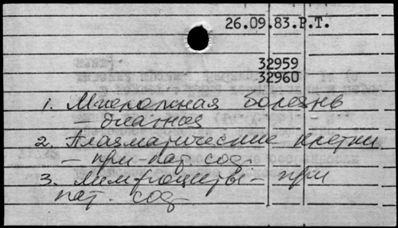 26.09.83.Р.Т.
32959
32960
1. Миеломная болезнь
– диагноз
2. Плазматические клетки
– при пат. сос.
3. Лимфоциты – при
пат. сос.